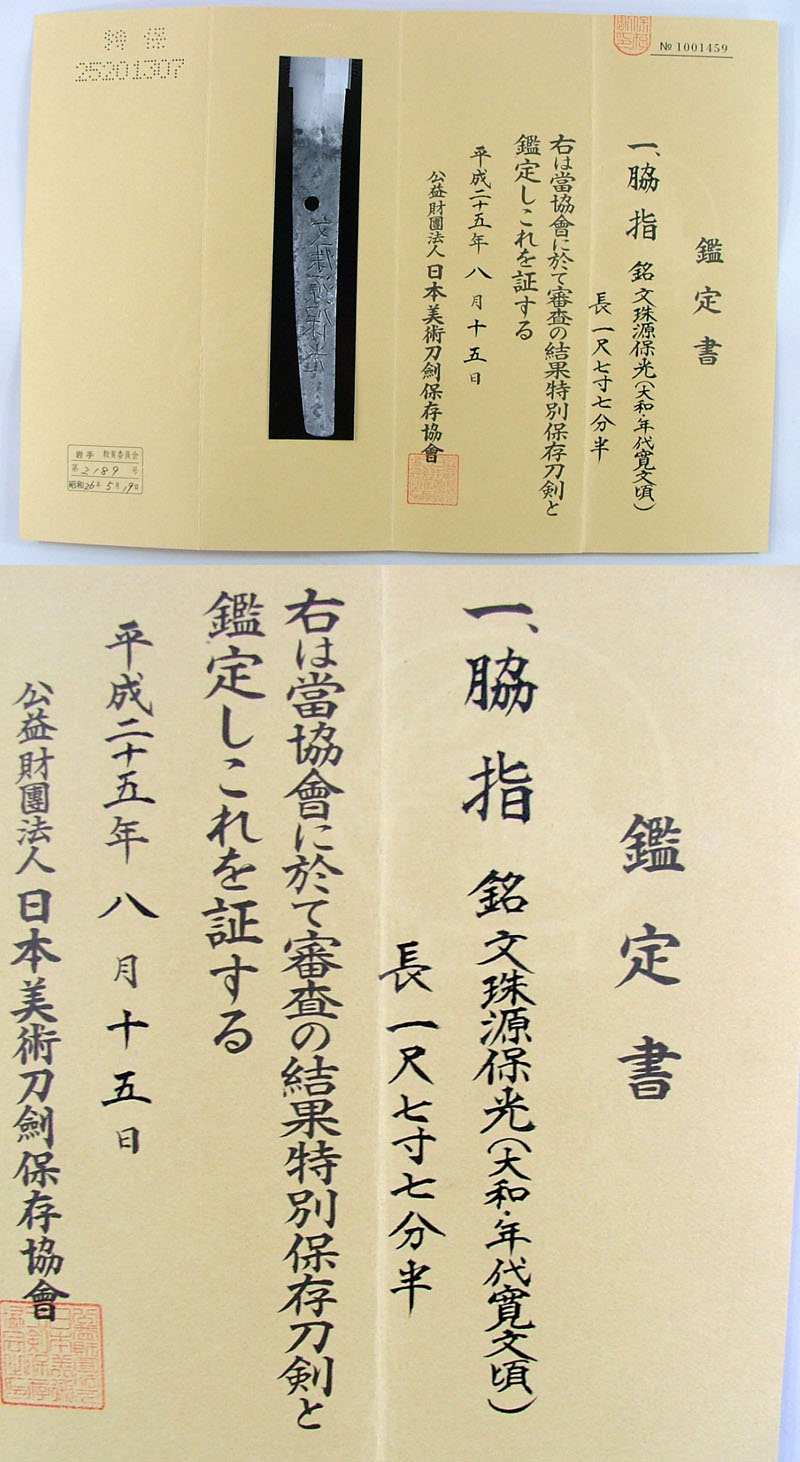 № 1001459
鑑定書
一、脇指 銘 文珠源保光(大和・年代寛文頃)
長 一尺七寸七分半
右は當協會に於て審査の結果特別保存刀剣と
鑑定しこれを証する
平成二十五年 八月十五日
公益財團法人 日本美術刀劍保存協會
特保
25201307
文珠源保光
岩手 教育委員会
第2189号
昭和26年5月19日
鑑定書
一、脇指 銘 文珠源保光(大和・年代寛文頃)
長 一尺七寸七分半
右は當協會に於て審査の結果特別保存刀剣と
鑑定しこれを証する
平成二十五年 八月十五日
公益財團法人 日本美術刀劍保存協會